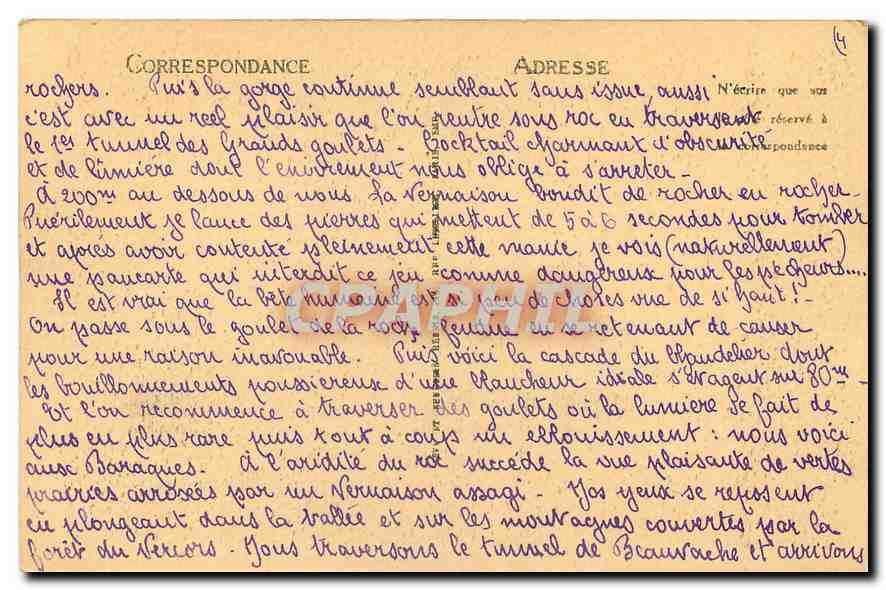 (4
CORRESPONDANCE ADRESSE
rochers. Puis la gorge continue semblant sans issue, aussi
N'écrire que sur
c'est avec un réel plaisir que l'on rentre sous roc en traversant
réservé à
le 1er tunnel des Grands goulets - Cocktail charmant d'obscurité
la correspondance
et de lumière dont l'enivrement nous oblige à s'arrêter -
À 200m au dessous de nous la Vernaison bondit de rocher en rocher -
Puérilement je lance des pierres qui mettent de 5 à 6 secondes pour tomber
et après avoir contenté pleinement cette manie je vois (naturellement)
une pancarte qui interdit ce jeu comme dangereux pour les pêcheurs....
Il est vrai que la bête humaine est si peu de choses vue de si haut! -
CPAPHIL
On passe sous le goulet de la roche fendue en se retenant de causer
pour une raison inavouable. Puis voici la cascade du Chaudelier dont
les bouillonnements poussiereux d'une blancheur idéale s'étagent sur 80m -
Et l'on recommence à traverser des goulets où la lumière se fait de
plus en plus rare puis tout à coup un éblouissement : nous voici
aux Baraques. À l'aridité du roc succède la vue plaisante de vertes
prairies arrosées par un Vernaison assagi - Nos yeux se reposent
en plongeant dans la vallée et sur les montagnes couvertes par la
forêt du Vercors. Nous traversons le tunnel de Beauvache et arrivons